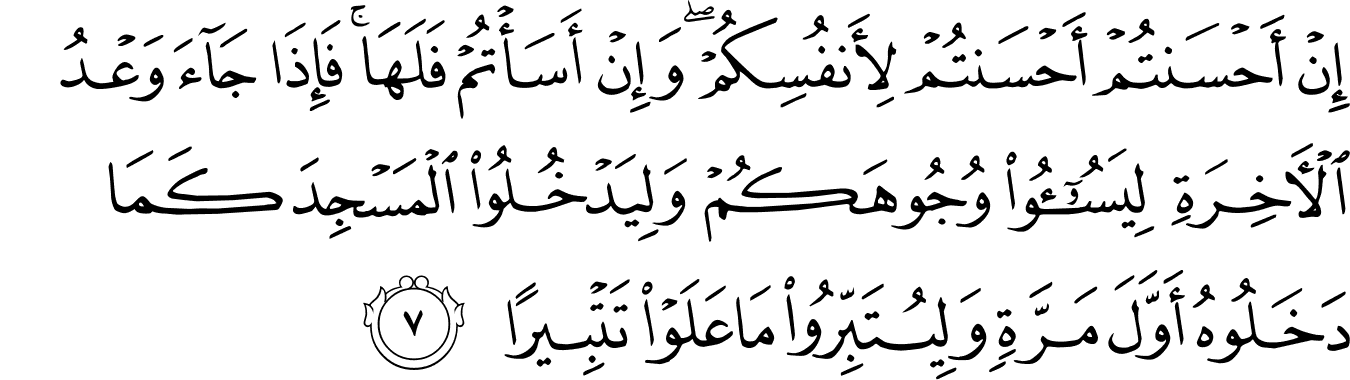 إِنْ أَحْسَنتُمْ أَحْسَنتُمْ لِأَنفُسِكُمْ ۖ وَإِنْ أَسَأْتُمْ فَلَهَا ۚ فَإِذَا جَآءَ وَعْدُ
ٱلْأَخِرَةِ لِيَسُـُٔوا۟ وُجُوهَكُمْ وَلِيَدْخُلُوا۟ ٱلْمَسْجِدَ كَمَا
دَخَلُوهُ أَوَّلَ مَرَّةٍ وَلِيُتَبِّرُوا۟ مَا عَلَوْا۟ تَتْبِيرًا ٧